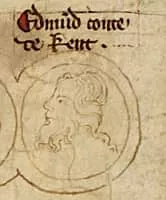 Edmund conte
de Kent .